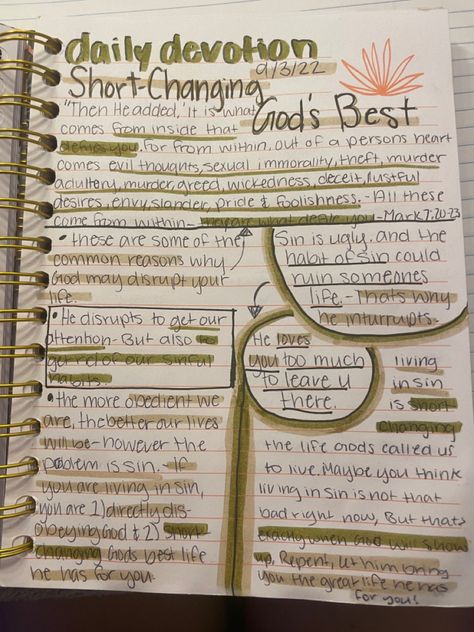 daily devotion
9/3/22
Short-Changing
God's Best
"Then He added, 'It is what
comes from inside that
defiles you. For from within, out of a persons heart
comes evil thoughts, sexual immorality, theft, murder
adultery, murder, greed, wickedness, deceit, lustful
desires, envy, slander, pride & foolishness. - All these
come from within - they are what defile you - Mark 7:20-23
• these are some of the
common reasons why
God may disrupt your
life.
Sin is ugly, and the
habit of sin could
ruin someones
life. - Thats why
he inturrupts.
• He disrupts to get our
attention - But also to
get rel of our sinful
habits.
He loves
you too much
to leave u
there.
• the more obedient we
are, the better our lives
will be - however the
problem is sin. - If
you are living in sin,
you are 1) directly dis-
obeying God & 2) short-
changing Gods best life
he has for you.
living
in sin
is short
changing
the life Gods called us
to live. Maybe you think
living in sin is not that
bad right now, But thats
exactly when God will show
up, Repent, let him bring
you the great life he has
for you!